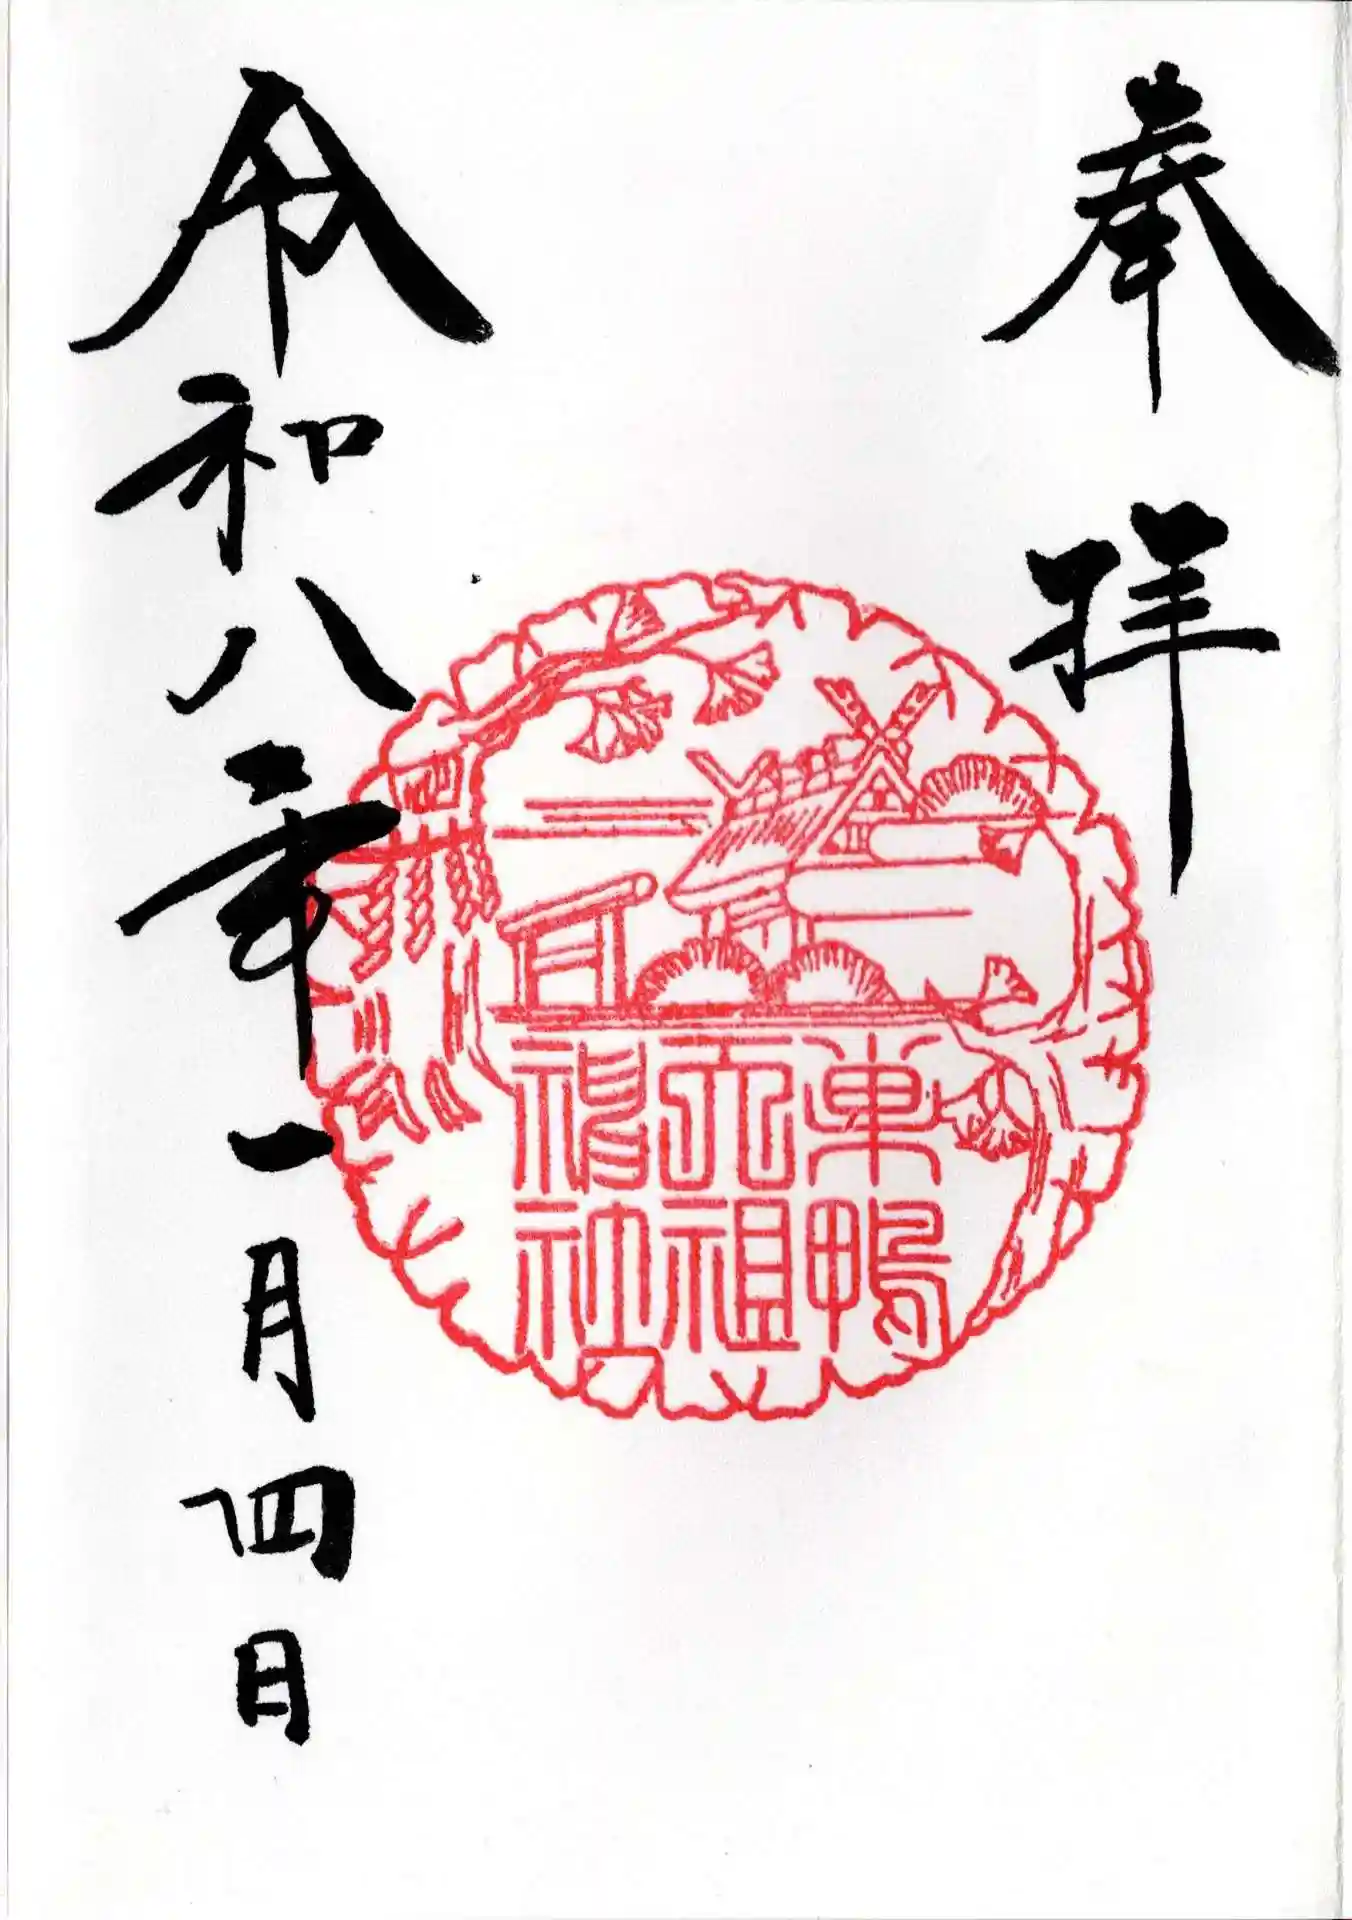 奉拝
巣鴨
天祖
神社
令和八年一月四日